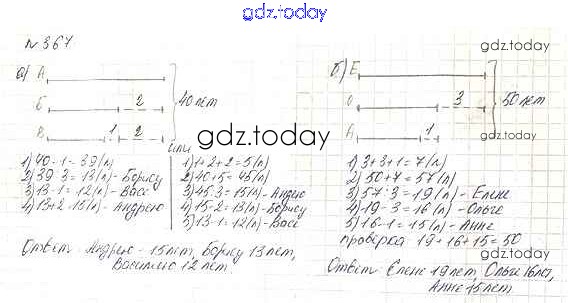 gdz.today
№ 367
gdz.today
а) А
Б 2
В 1 2
40 лет
gdz.today
или
1) 40-1=39(л)
2) 39:3=13(л)-Борису
3) 13-1=12(л)-Васе
4) 13+2=15(л)-Андрею
1) 1+2+2=5(л)
2) 40+5=45(л)
3) 45:3=15(л)-Андрею
4) 15-2=13(л)-Борису
5) 13-1=12(л)-Васе
Ответ Андрею-15лет, Борису 13лет,
Василию 12 лет
б) Е
О 3
А 1
50 лет
gdz.today
1) 3+3+1=7(л)
2) 50+7=57(л)
3) 57:3=19(л)-Елене
4) 19-3=16(л)-Ольге
5) 16-1=15(л)-Анне
gdz.today
проверка 19+16+15=50
gdz.today
Ответ Елене 19лет, Ольге 16лет,
Анне 15лет